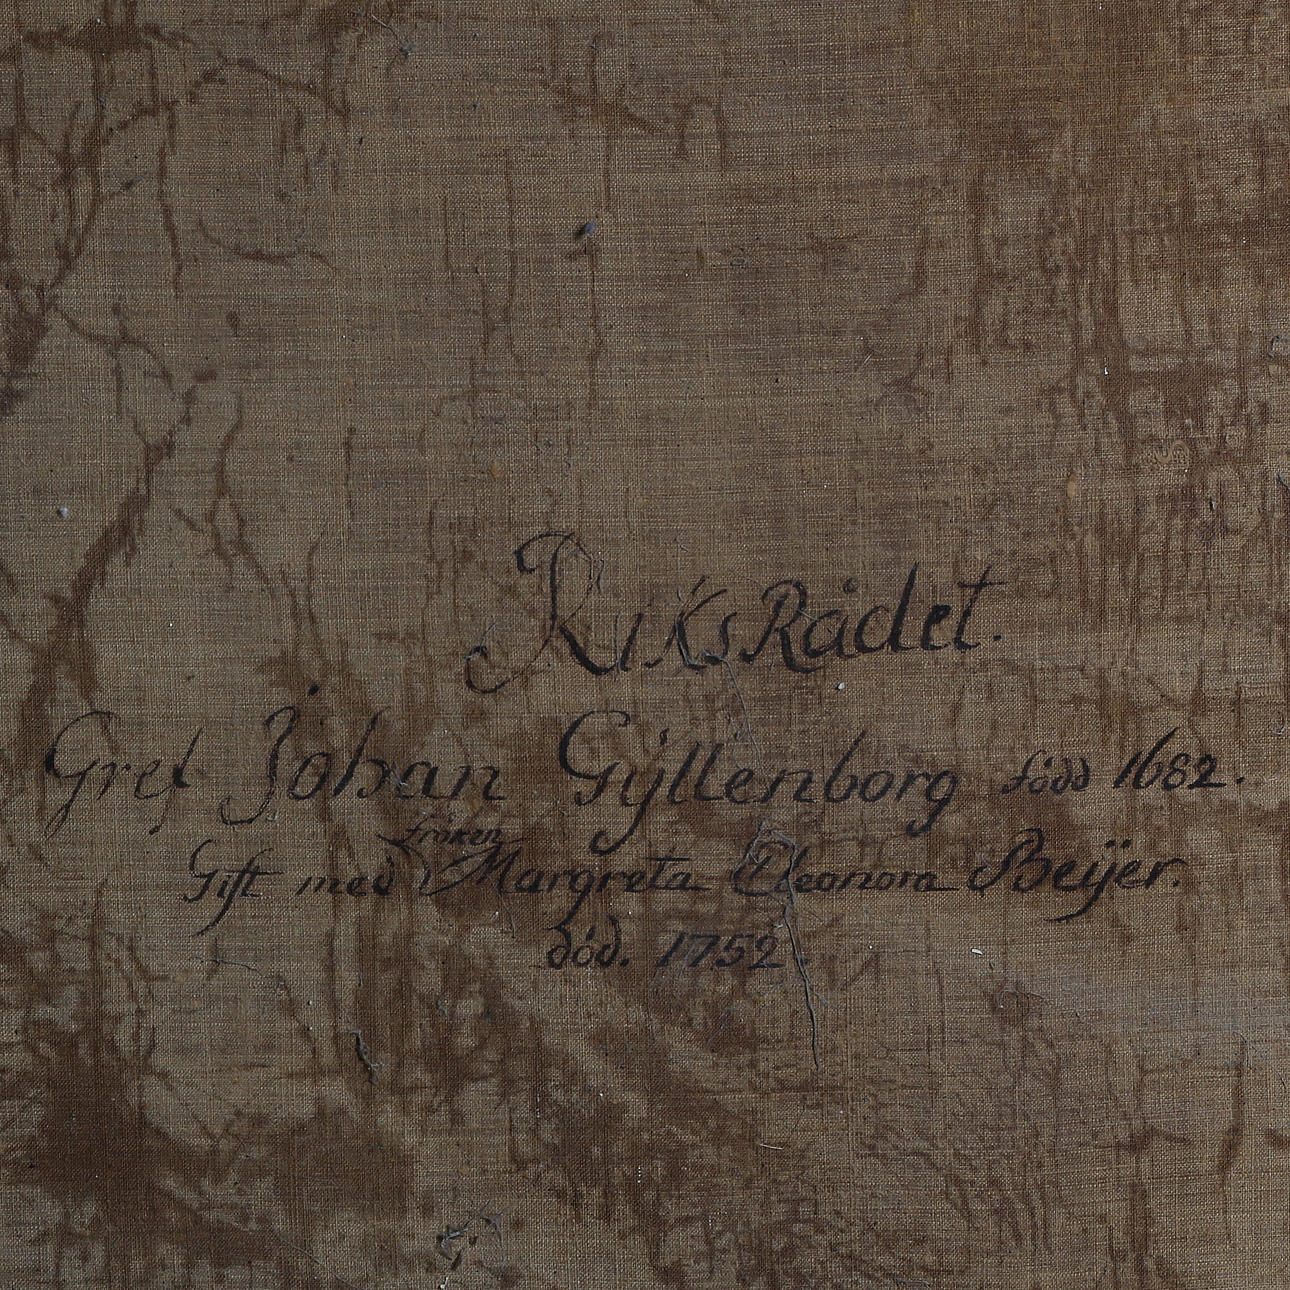 RiksRådet.
Gref Johan Gÿllenborg född 1682.
fröken
Gift med Margreta Eleonora Beÿer.
död. 1752.